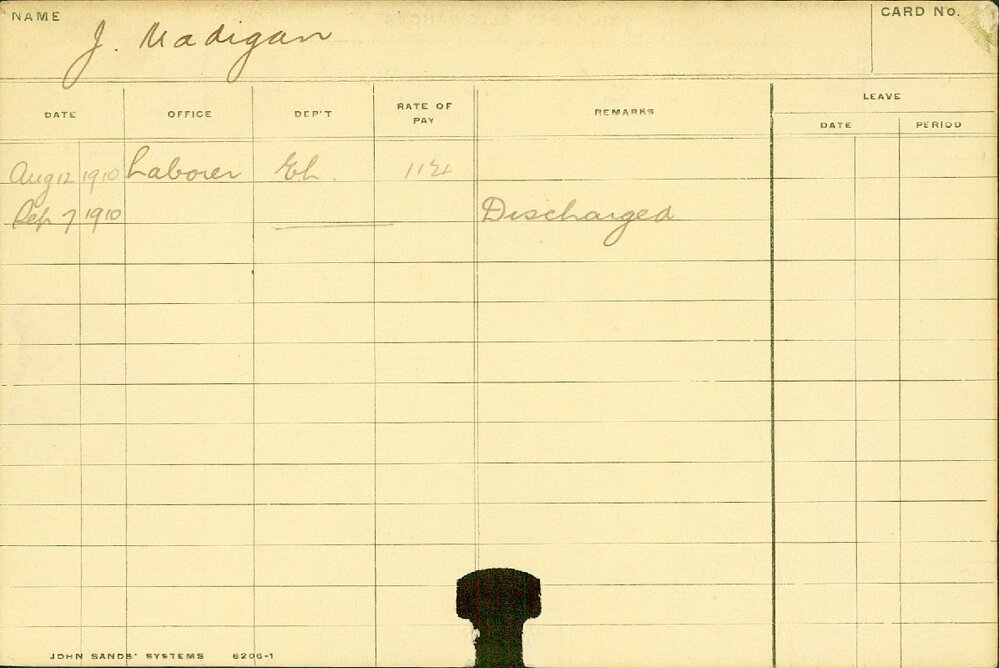 NAME J. Madigan CARD No.
DATE OFFICE DEP'T RATE OF PAY REMARKS LEAVE
DATE PERIOD
Aug 12 1910 Laborer Eh.
Sep 7 1910 Discharged
JOHN SANDS' SYSTEMS 6206-1